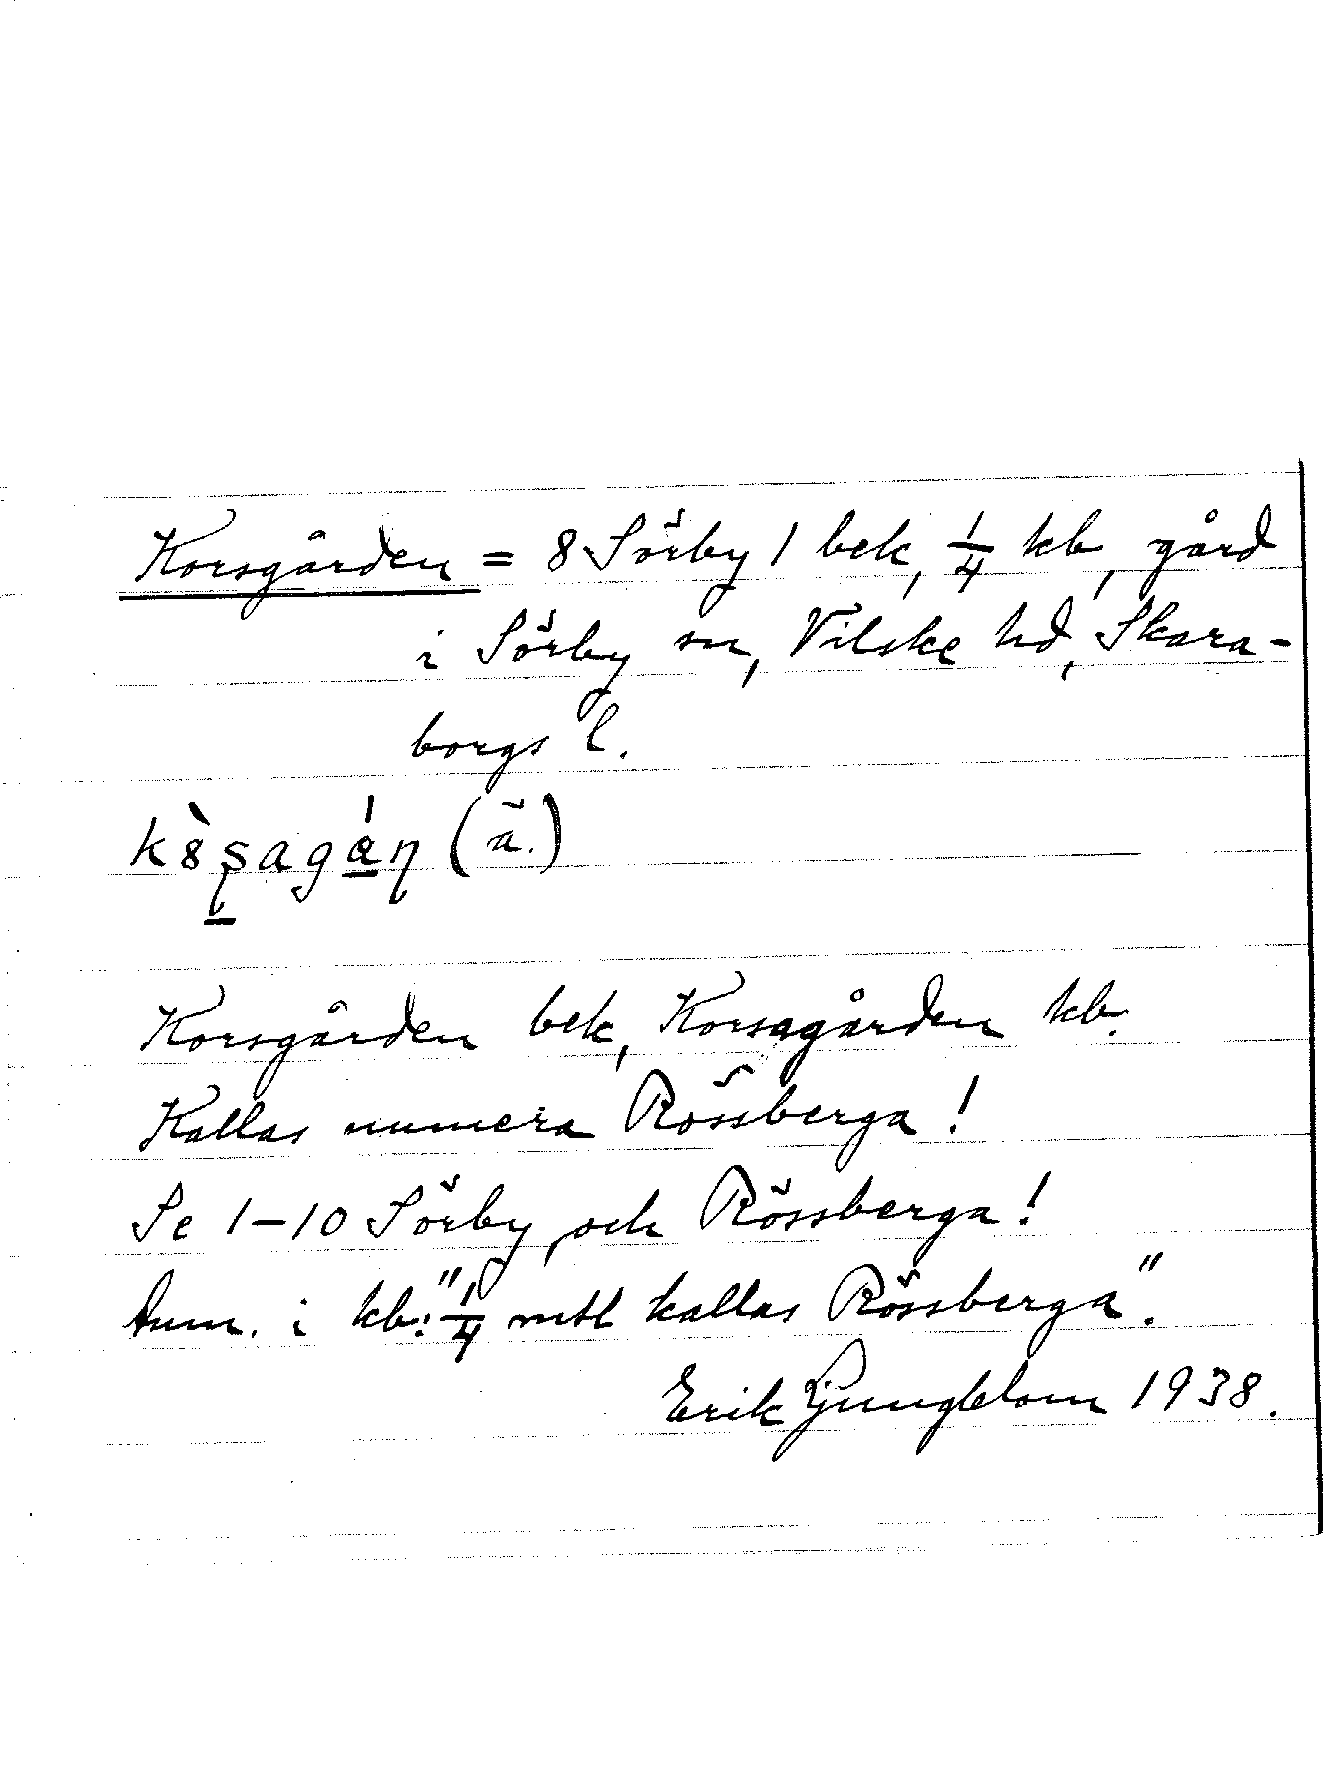 Korsgården = 8 Sörby 1 bek, 1/4 kb, gård
i Sörby sn, Vilske hd, Skara-
borgs l.
k8̀ʂagáɳ (ä.)
Korsgården bek, Korsagården kb.
Kallas numera Rössberga!
Se 1-10 Sörby, och Rössberga!
Anm. i kb: "1/4 mtl kallas Rössberga".
Erik Ljungblom 1938.